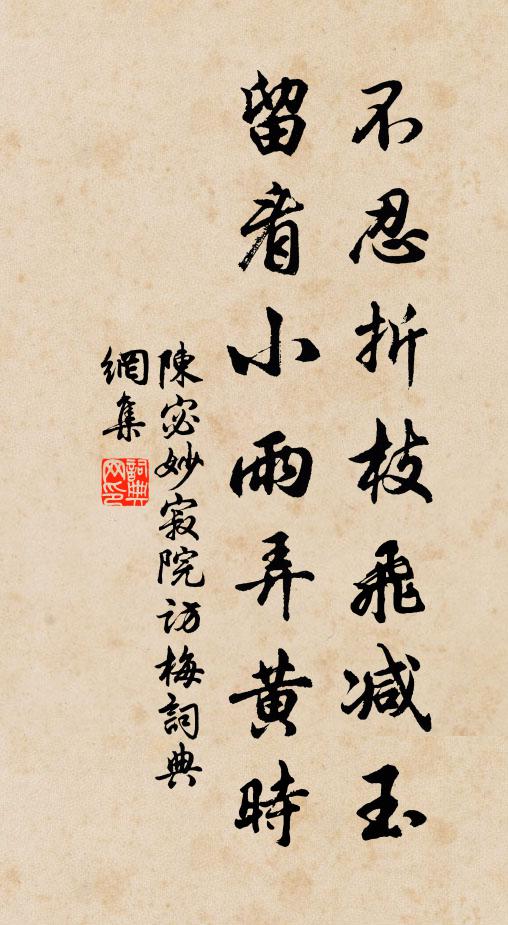 不忍折枝飛減玉
留看小雨弄黄時
陳宓妙寂院訪梅詞典
網集
詞典网印